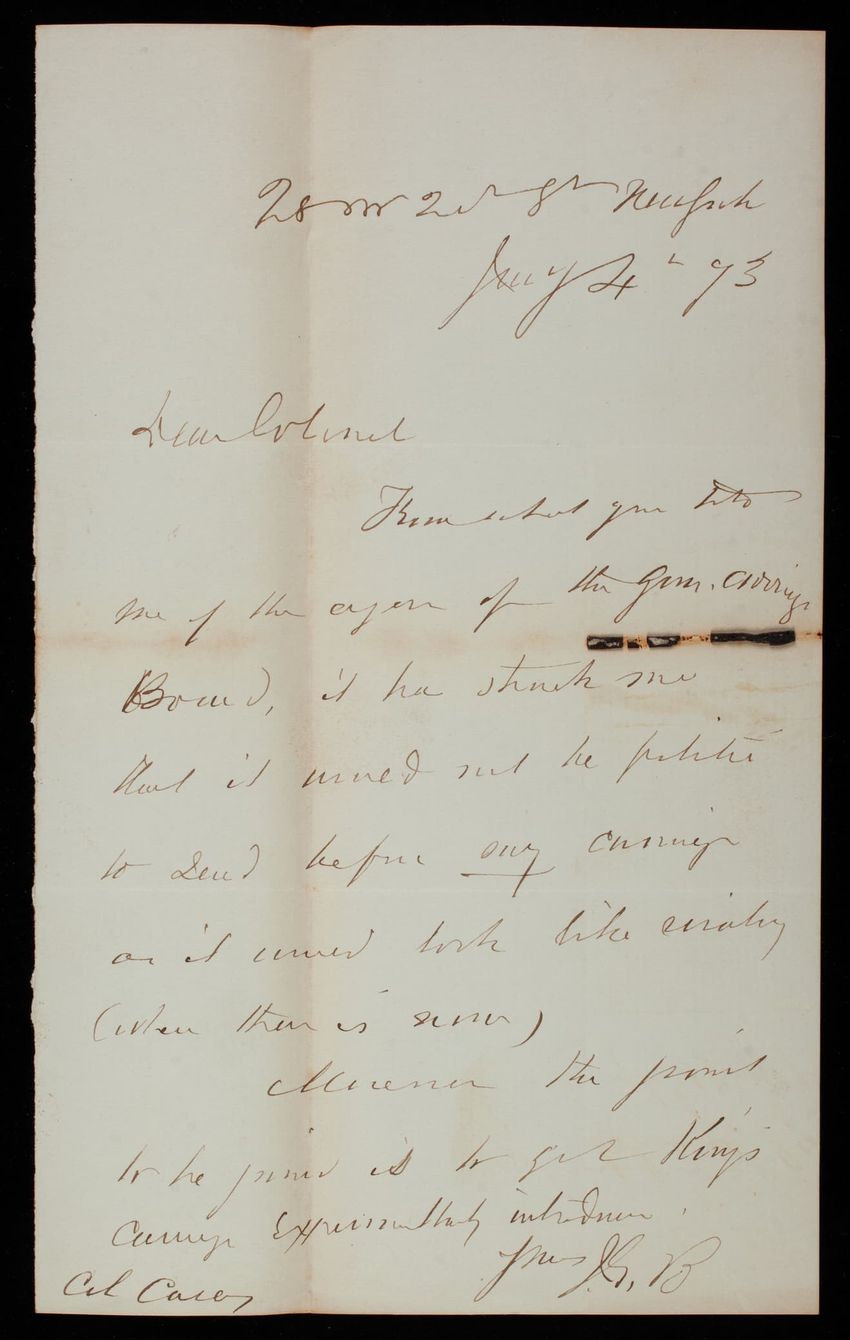 28 W 20th St New York
Jany 4th 73
Dear Colonel
From what you
me of the of the Gun. Carriage
Board, it has struck me
that it would not be politic
to send before my carriage
as it would look like rivalry
(when there is none)
Moreover the point
to be is to get King's
carriage Experimentally introduced.
Yours J.G.B
Col Casey